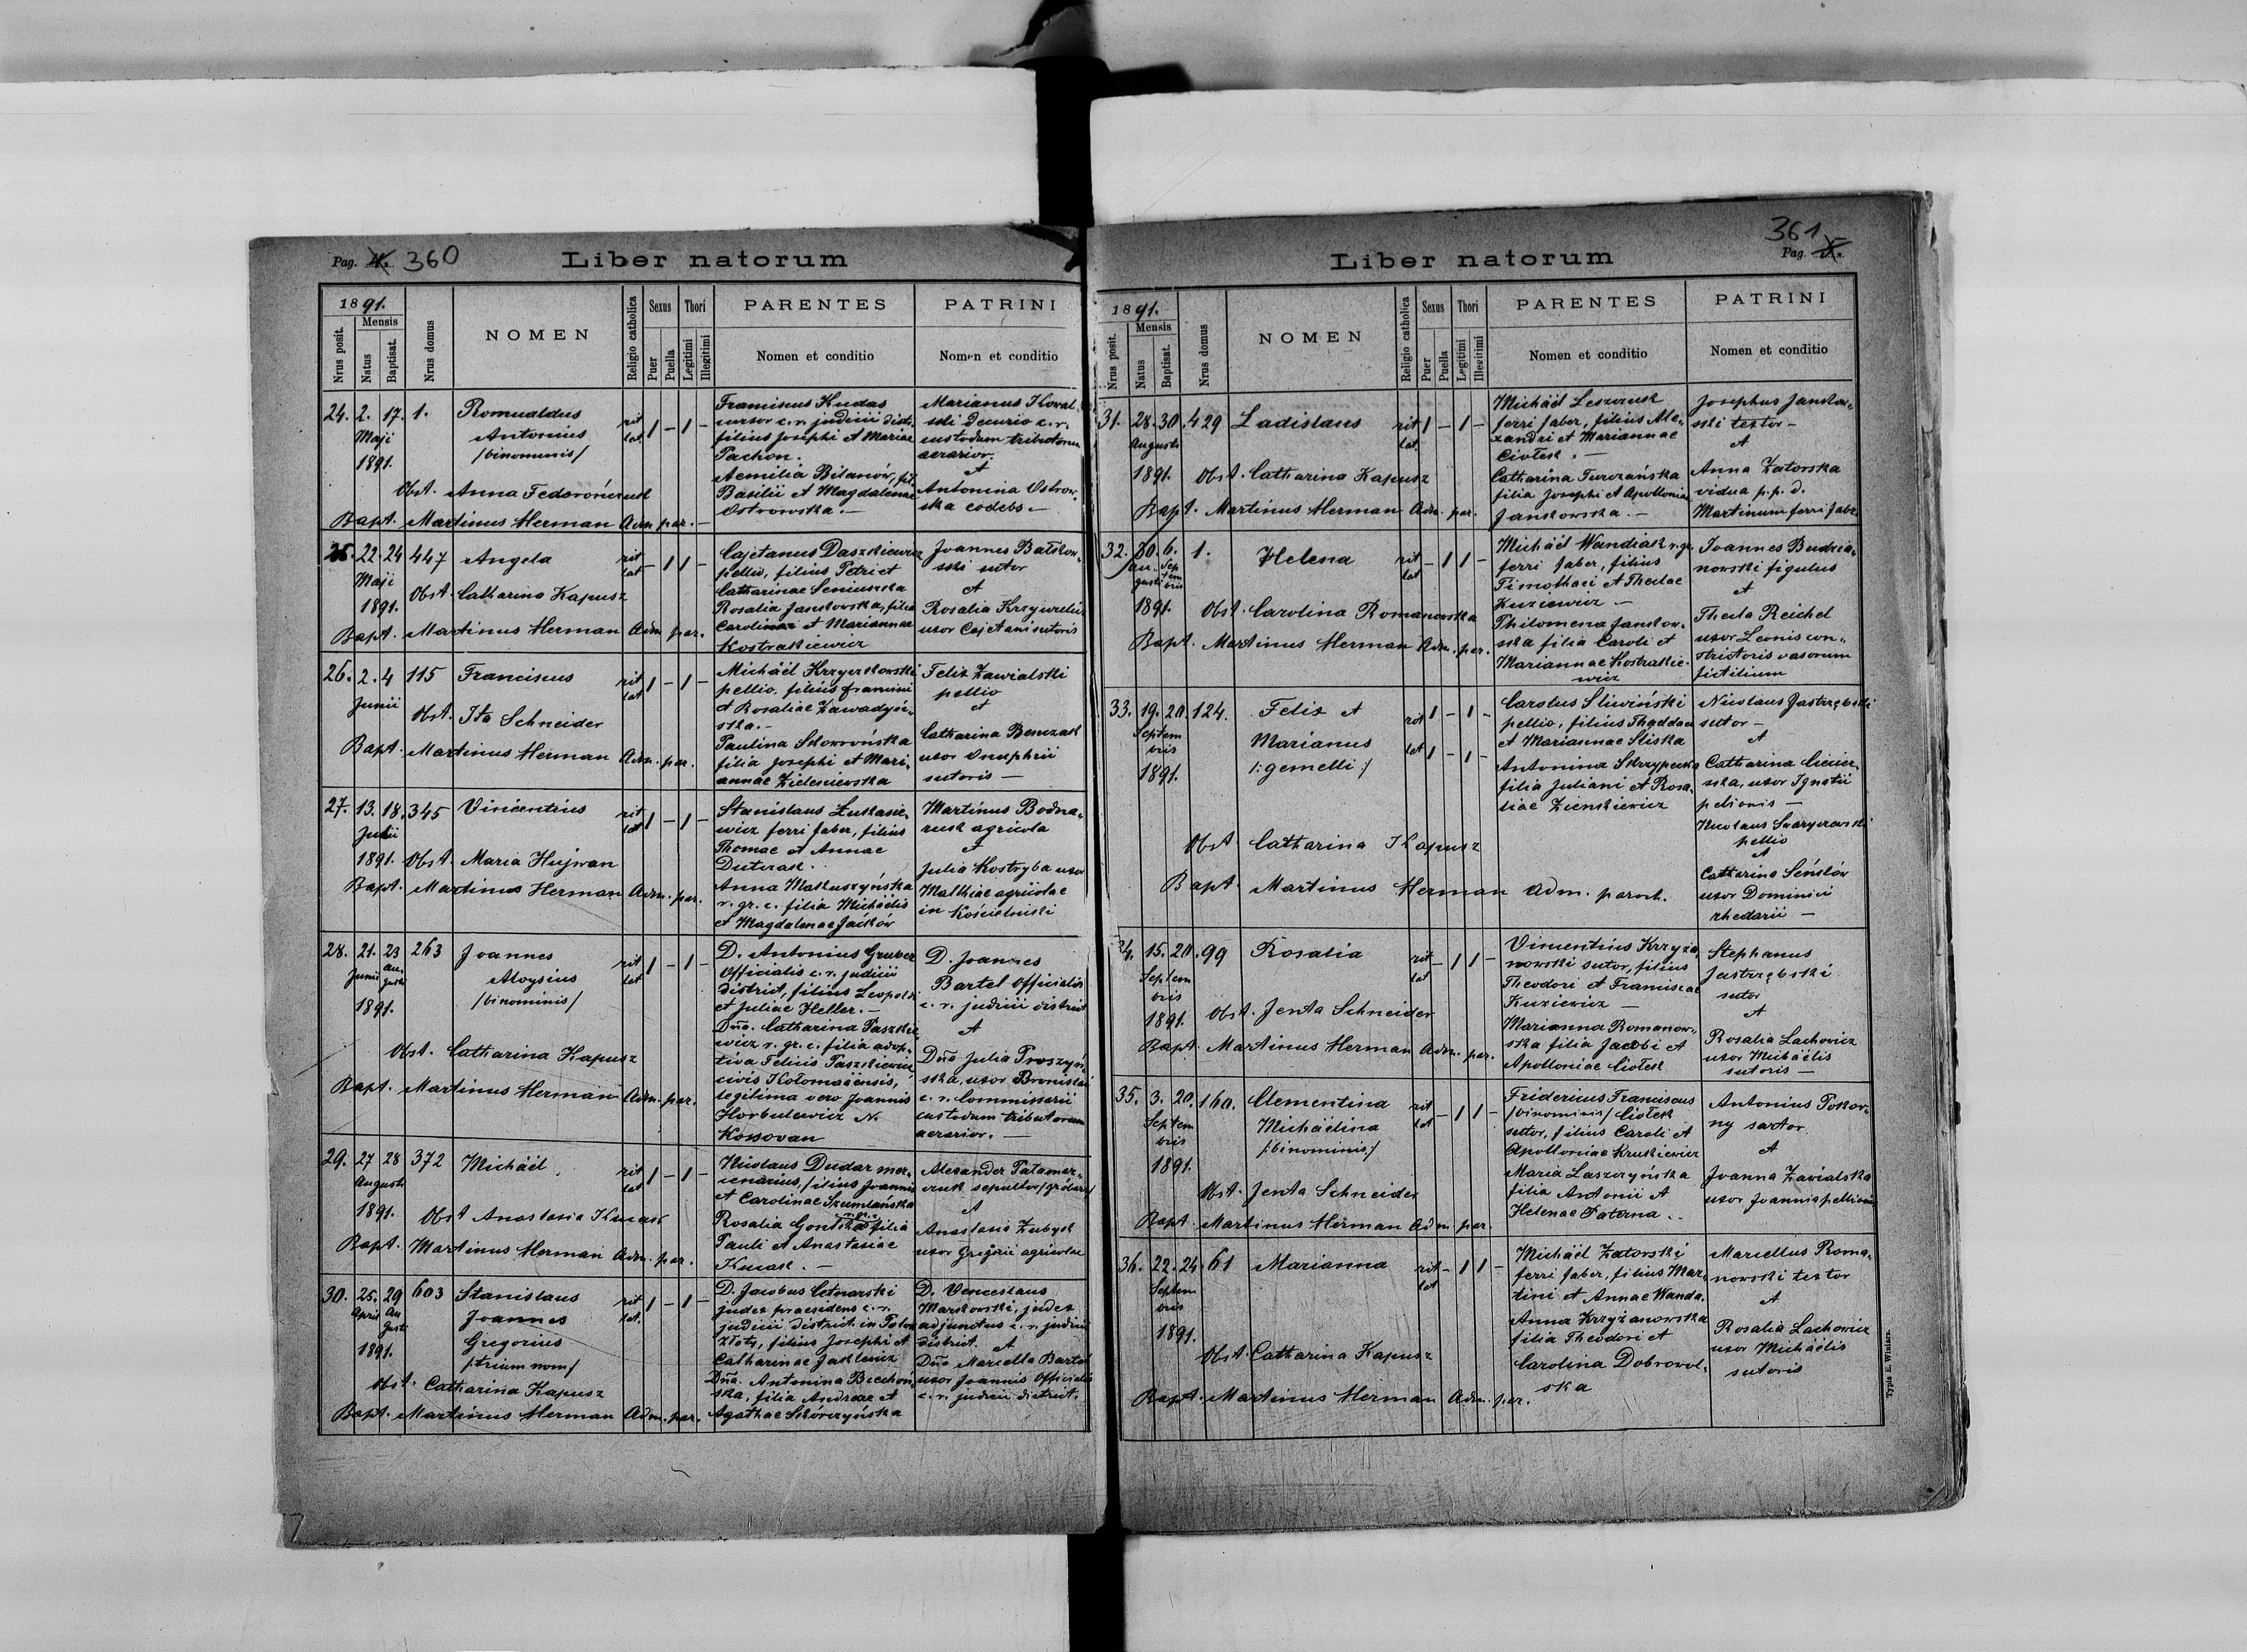 Pag. 4. 360
Liber natorum
1891.
Nrus posit.
Mensis
Natus
Baptisat.
Nrus domus
NOMEN
Religio catholica
Sexus
Puer
Puella
Thori
Legitimi
Illegitimi
PARENTES
Nomen et conditio
PATRINI
Nomen et conditio
24. 2. 17. 1. Romualdus
Maji Antonius
1891. /binominis/
rit
lat
1 - 1 -
Obst. Anna Fedorończuk
Bapt. Martinus Herman Adm. par. -
Franciscus Kudas
cursor c. r. judicii distr.
filius Josephi et Mariae
Pachon.
Aemilia Bilanów, fil.
Basilii et Magdalenae
Ostrowska. -
Marianus Koval
ski Decurio c. r.
custodum tributorum
aerarior.
et
Antonina Ostrow,
ska coelebs. -
25. 22. 24 447 Angela
Maji
1891.
rit
lat
- 1 1 -
Obst. Catharina Kapusz
Bapt. Martinus Herman Adm. par.
Cajetanus Daszkiewicz
pellio, filius Petri et
Catharinae Seniuszka
Rosalia Jankowska, filia
Carolinae et Mariannae
Kostrakiewicz
Joannes Batkow,
ski sutor
et
Rosalia
uxor Cajetani sutoris
26. 2. 4 115 Franciscus
Junii
rit
lat
1 - 1 -
Obst. Ita Schneider
Bapt. Martinus Herman Adm. par.
Michäel Krzyczkowski
pellio, filius Francisci
et Rosaliae Zawadyń,
ska. -
Paulina Skowrońska
filia Josephi et Mari,
annae Zieleniewska
Felix Zawialski
pellio
et
Catharina Benczak
uxor Onuphrii
sutoris -
27. 13. 18. 345 Vincentius
Julii
1891.
rit
lat
1 - 1 -
Obst. Maria Hujwan
Bapt. Martinus Herman Adm. par.
Stanislaus Łukasie,
wicz ferri faber, filius
Thomae et Annae
Dutczak.
Anna Makuszyńska
r. gr. c. filia Michäelis
et Magdalenae Jacków
Martinus Bodna,
ruk agricola
et
Julia Kostryba uxor
Mathiae agricolae
in Kościelniki
28. 21. 23 263 Joannes
Junii Au- Aloysius
gusti
1891. /binominis/
rit
lat
1 - 1 -
Obst. Catharina Kapusz
Bapt. Martinus Herman Adm. par.
D. Antonius Gruber
Officialis c. r. judicii
district, filius Leopoldi
et Juliae Heller. -
Dña. Catharina Paszkie,
wicz r. gr. c. filia adop,
tiva Felicis Paszkiewicz
civis Kołomaënsis,
legitima vero Joannis
Horbulewicz N.
Kossovan
D. Joannes
Bartel Officialis
c. r. judicii district
et
Dña Julia Proszyń,
ska, uxor Bronislai
c. r. Commissarii
custodum tributorum
aerarior. -
29. 27 28 372 Michäel
Augusti
1891.
rit
lat
1 - 1 -
Obst Anastasia Kucak
Bapt. Martinus Herman Adm. par.
Nicolaus Dudar mer,
cenarius, filius Joannis
et Carolinae Szumlańska
r. gr. c.
Rosalia Gontska filia
Pauli et Anastasiae
Kucak. -
Alexander Patamar,
czuk sepultor
et
Anastasia Zubyk
uxor Gregorii agricolae
30. 25. 29 603 Stanislaus
April Au Joannes
gusti
1891. Gregorius
/trium nom/
rit
lat.
1 - 1 -
Obst. Catharina Kapusz
Bapt. Martinus Herman Adm. par.
D. Jacobus Cetnarski
judex praesidens c. r.
judicii district. in Potok
złoty, filius Josephi et
Catharinae Jaklewicz
Dña. Antonina Bechoń,
ska, filia Andreae et
Agathae Skórczyńska
D. Venceslaus
Markowski, judex
adjunctus c. r. judicii
district. et
Dña Marcella Bartel
uxor Joannis Officialis
c. r. judicii district.
361
Pag. 5.
Liber natorum
1891.
Nrus posit.
Mensis
Natus
Baptisat.
Nrus domus
NOMEN
Religio catholica
Sexus
Puer
Puella
Thori
Legitimi
Illegitimi
PARENTES
Nomen et conditio
PATRINI
Nomen et conditio
31. 28. 30. 429 Ladislaus
Augusti
1891.
rit
lat.
1 - 1 -
Obst. Catharina Kapusz
Bapt. Martinus Herman Adm. par.
Michäel Leszczuk
ferri faber, filius Ale,
xandri et Mariannae
Ciołek. -
Catharina Turczańska
filia Josephi et Apolloniae
Jankowska. -
Josephus Jankow,
ski textor -
et
Anna Zatorska
vidua p. p. d.
Martinum ferri fabr.
32. 30. 6. 1. Helena
Au- Sep
gusti tem
bris
1891.
rit
lat
- 1 1 -
Obst. Carolina Romanowska
Bapt. Martinus Herman Adm. par.
Michäel Wandiak r. gr.
ferri faber, filius
Timothaei et Theclae
Kuziewicz -
Philomena Jankow,
ska filia Caroli et
Mariannae Kostrakie,
wicz
Joannes Budzia,
nowski figulus
et
Thecla Reichel
uxor Leonis con,
strictoris vasorum
fictilium
33. 19. 20. 124. Felix et
Septem Marianus
bris
1891. /:gemelli:/
rit
lat
1 - 1 -
1 - 1 -
Obst. Catharina Kapusz
Bapt. Martinus Herman Adm. paroch.
Carolus Sliwiński
pellio, filius Thaddaei
et Mariannae Sliska
Antonina Skrzypecka
filia Juliani et Rosa,
liae Zienkiewicz
Nicolaus Jastrzębski
sutor -
et
Catharina Cicier,
ska, uxor Ignatii
pelionis -
Nicolaus Skrzyczowski
pellio
et
Catharina Seńków
uxor Dominici
rhedarii -
34. 15. 20. 99 Rosalia
Septem
bris
1891.
rit
lat
- 1 1 -
Obst. Jenta Schneider
Bapt. Martinus Herman Adm. par.
Vincentius Krzyża,
nowski sutor, filius
Theodori et Franciscae
Kuziewicz -
Marianna Romanow,
ska filia Jacobi et
Apolloniae Ciołek
Stephanus
Jastrzębski
sutor
et
Rosalia Lachowicz
uxor Michäelis
sutoris -
35. 3. 20. 160. Clementina
Septem Michäelina
bris
1891. /:binominis/
rit
lat
- 1 1 -
Obst. Jenta Schneider
Bapt. Martinus Herman Adm. par.
Fridericus Franciscus
/binominis/ Ciołek
sutor, filius Caroli et
Apolloniae Krukiewicz
Maria Laszczyńska
filia Antonii et
Helenae Paterna. -
Antonius Pokor,
ny sartor
et
Joanna Zawialska
uxor Joannis pellionis
36. 22. 24. 61 Marianna
Septem
bris
1891.
rit
lat
- 1 1 -
Obst. Catharina Kapusz
Bapt. Martinus Herman Adm. par.
Michäel Zatorski
ferri faber, filius Mar,
tini et Annae Wanda.
Anna Krzyżanowska
filia Theodori et
Carolina Dobrowol,
ska
Marcellus Roma,
nowski textor
et
Rosalia Lachowicz
uxor Michäelis
sutoris
Typis E. Winiarz.